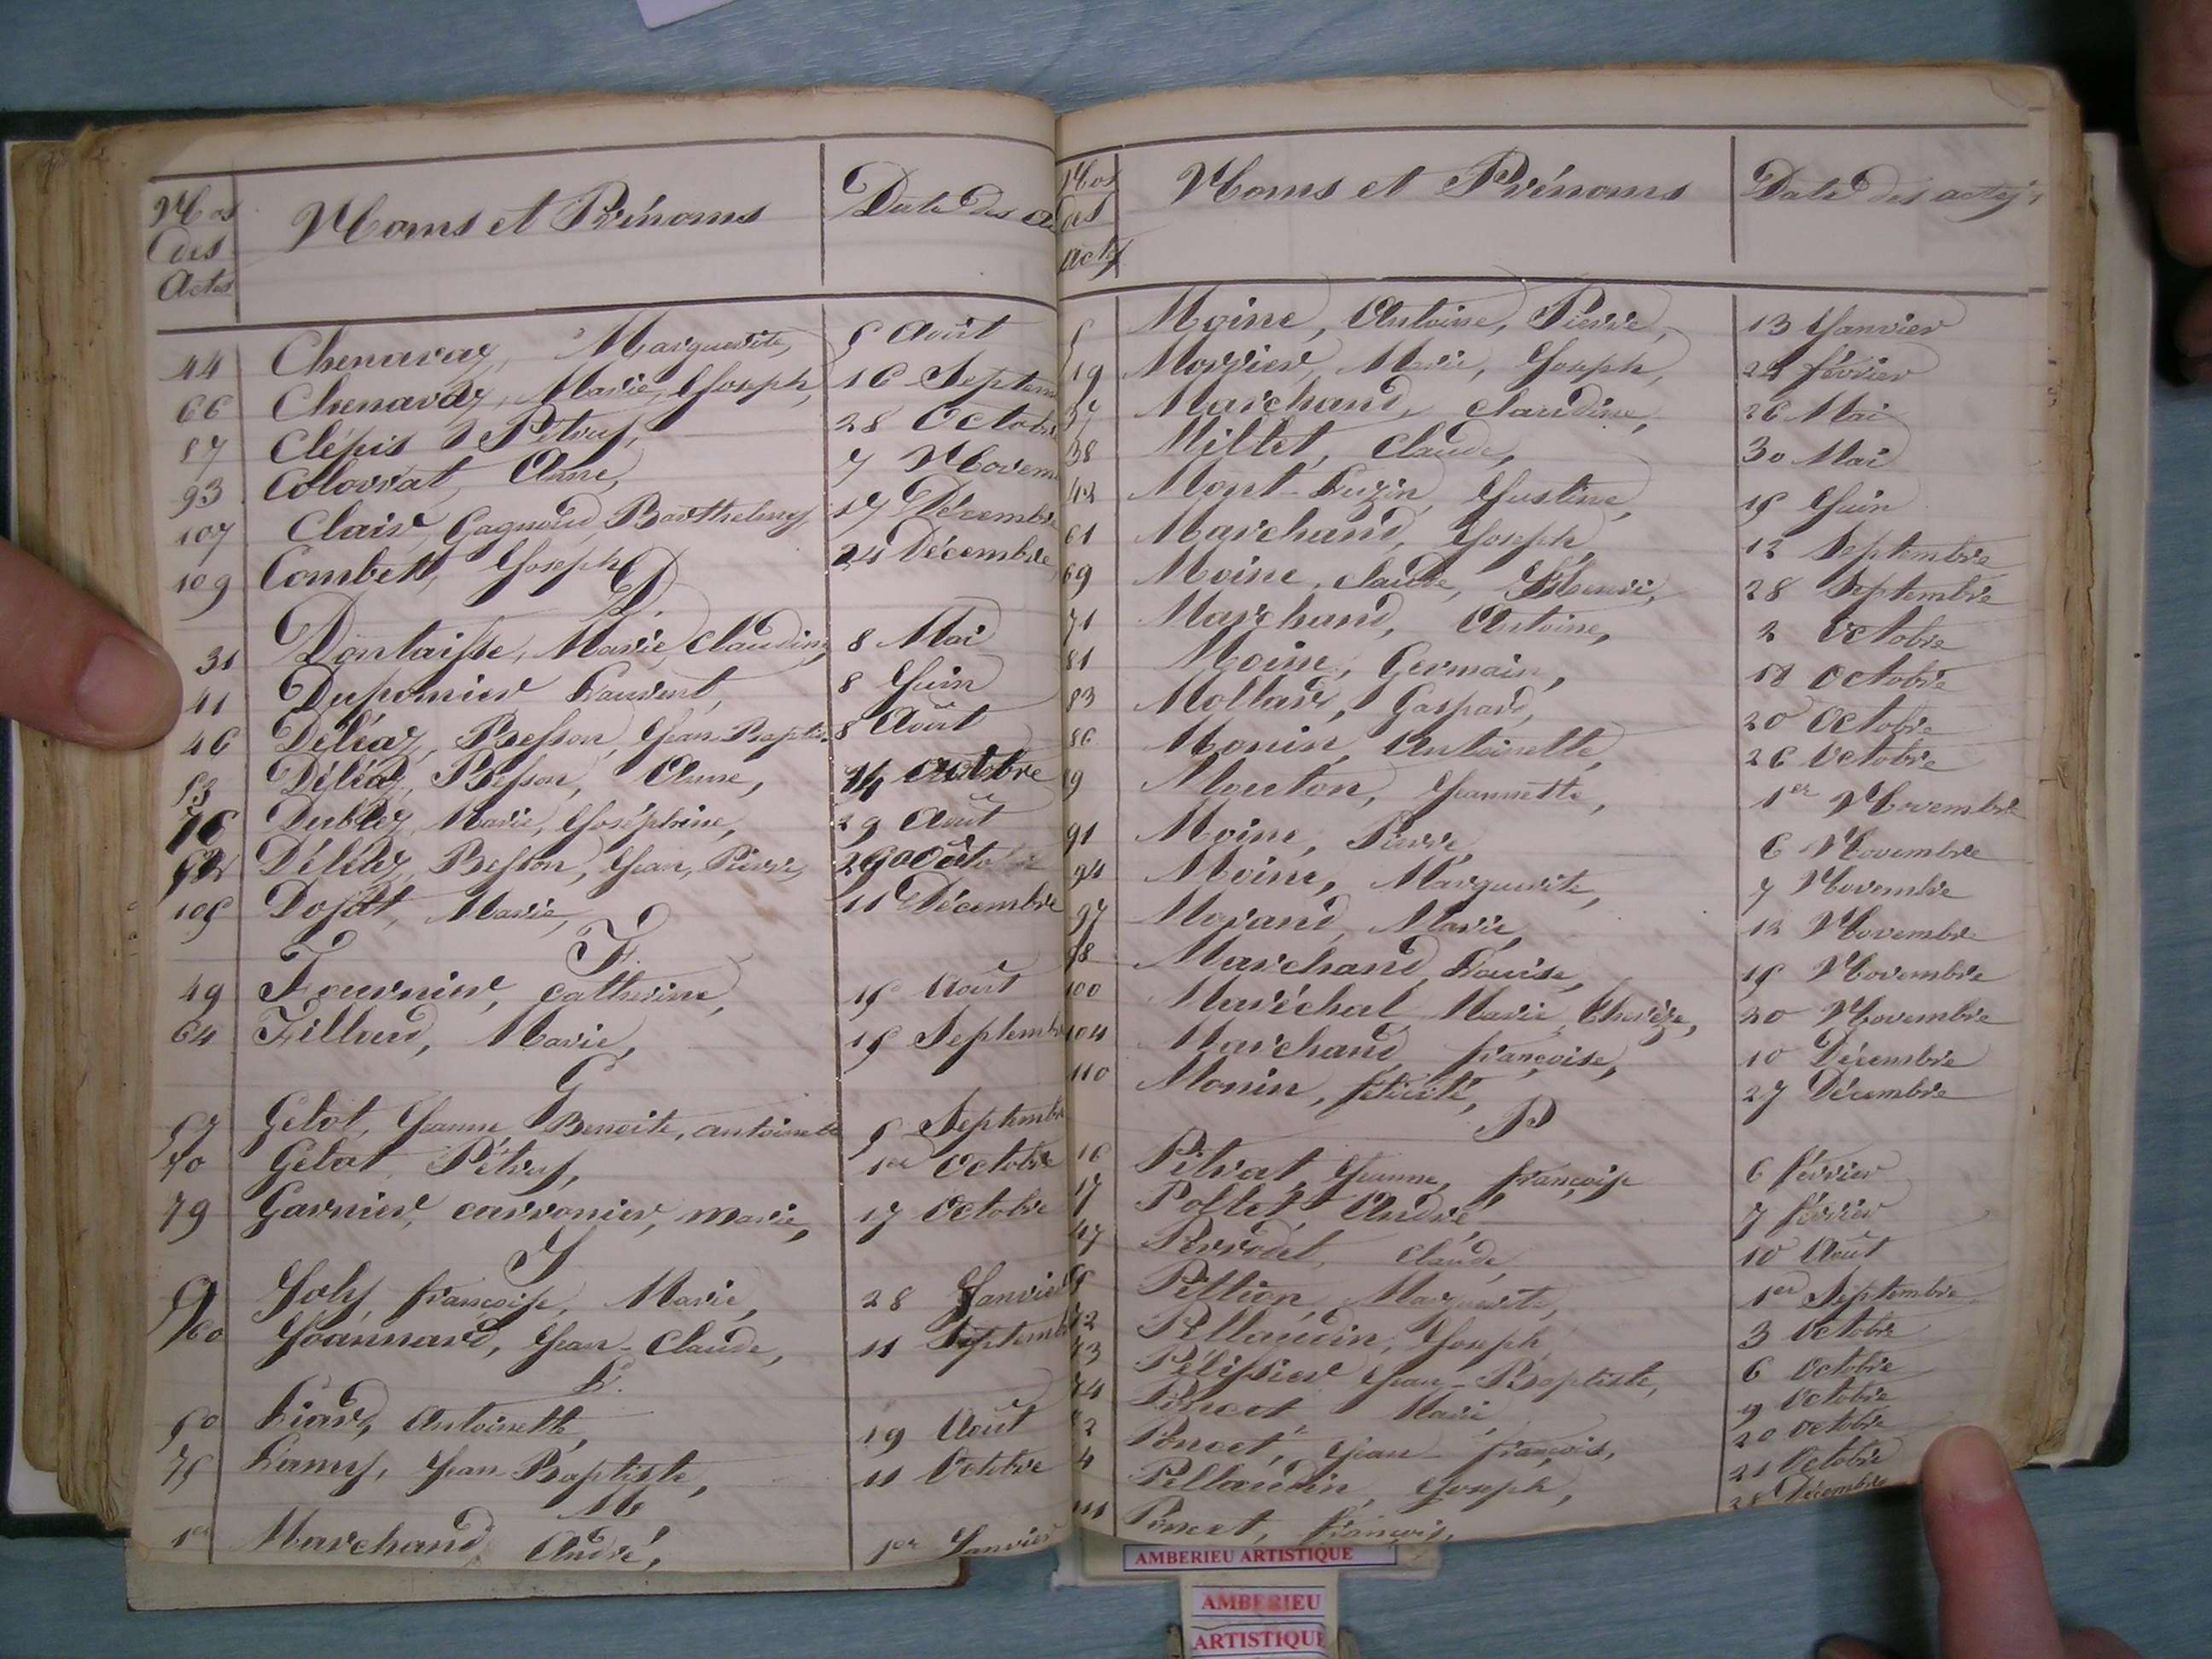 Nos des Actes Noms et Prénoms Date des a
44 Chenavaz, Marguerite, 5 Août
66 Chenavaz, Marie, Joseph, 16 Septem
87 Clépis Pétrus, 28 Octobre
93 Colovrat, Anne, 7 Novem
107 Clair, Gagnoud, Barthelmy 17 Décembre
109 Combett, Joseph 24 Décembre
D.
31 Dontaisse, Marie, Claudine, 8 Mai
41 Duponnier Laurent, 8 Juin
46 Déléaz, Besson, Jean-Baptis. 8 Août
53 Déléaz, Besson, Anne, Octobre
76 Dublez, Marie, Joséphine, 29 Août
Déléaz, Besson, Jean, Pierre,
105 Dojat, Marie, 11 Décembre
F.
49 Fournier, Catherine, 15 Août
64 Filloud, Marie, 15 Septemb
G
57 Gelot, Jeanne, Benoite, antoinette 5 Septemb
70 Gelot, Pétrus, 1er Octobre
79 Garnier, carronier, marie, 17 Octobre
J
9 Joly, françoise, Marie, 28 Janvier
60 Joannard, Jean-Claude, 11 Septemb
L.
50 Liard, Antoinette, 19 Août
75 Lamy, Jean-Baptiste, 11 Octobre
M
1er Marchand André, 1er Janvier
Nos des Actes Noms et Prénoms Date des actes
5 Moine, Antoine, Pierre, 13 Janvier
19 Morrier, Marie, Joseph, 24 février
37 Marchand, Claudine, 26 Mai
38 Millet, Claude, 30 Mai
42 Mont-Luzin, Justine, 15 Juin
61 Marchand, Joseph, 12 Septembre
69 Moine, Claude, 28 Septembre
71 Marchand, Antoine, 2 Octobre
81 Moine, Germain, 18 Octobre
83 Mollard, Gaspard, 20 Octobre
86 Monin, Antoinette, 26 Octobre
9 Mouton, Jeannette, 1er Novembre
91 Moine, Pierre, 6 Novembre
94 Moine, Marguerite, 7 Novembre
97 Morand, Marie, 12 Novembre
98 Marchand, Louise, 15 Novembre
100 Maréchal Marie, Thérèze, 20 Novembre
104 Marchand, françoise, 10 Décembre
110 Monin, félicité, 27 Décembre
P
16 Pétrat, Jeanne, françoise 6 février
17 Pollet, André, 7 février
47 Perrodet, Claude, 10 Août
Pillion, Marguerite, 1er Septembre
72 Pellaudin, Joseph, 3 Octobre
73 Pélissier Jean-Baptiste, 6 Octobre
74 Poncet, Marie, 9 Octobre
2 Poncet, Jean-françois, 20 Octobre
4 Pellaudin, Joseph, 21 Octobre
111 Poncet, François, 28 Décembre
AMBERIEU ARTISTIQUE
AMBERIEU
ARTISTIQUE